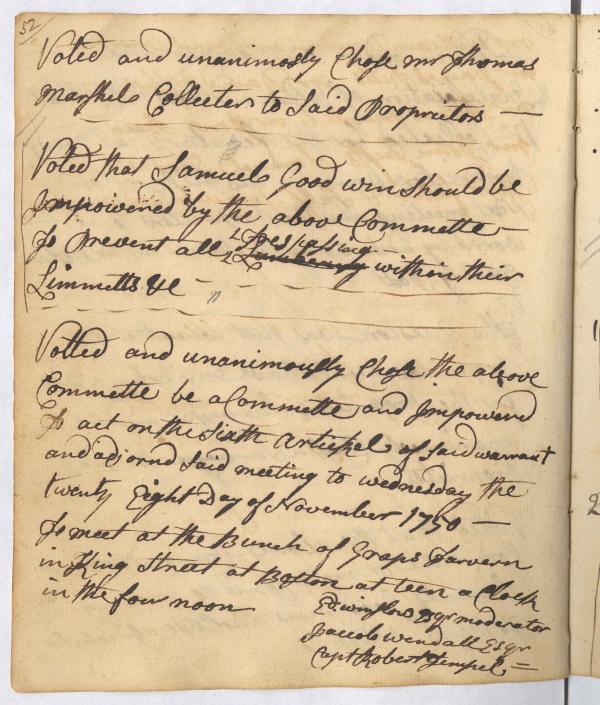 52
Voted and unanimosly Chose mr Thomas
Marshel Collecter to Said Proprietors —
Voted that Samuel Good win Should be
Impowered by the above Committe —
To Prevent all Trespassing
Lumbering within their
Limmetts &c —
Votted and unanimously Chose the above
Committe be a Committe and Impowered
To act on the Sixth Artickel of Said warrant
and adjornd Said meeting to wednesday the
twenty Eight Day of November 1750 —
To meet at the Bunch of Graps Tarvern
in King Street at Boston at teen a Clock
in the four noon
Ed winslow Esqr moderator
Jaccob wendall Esqr
Capt Robert Tempel —
2